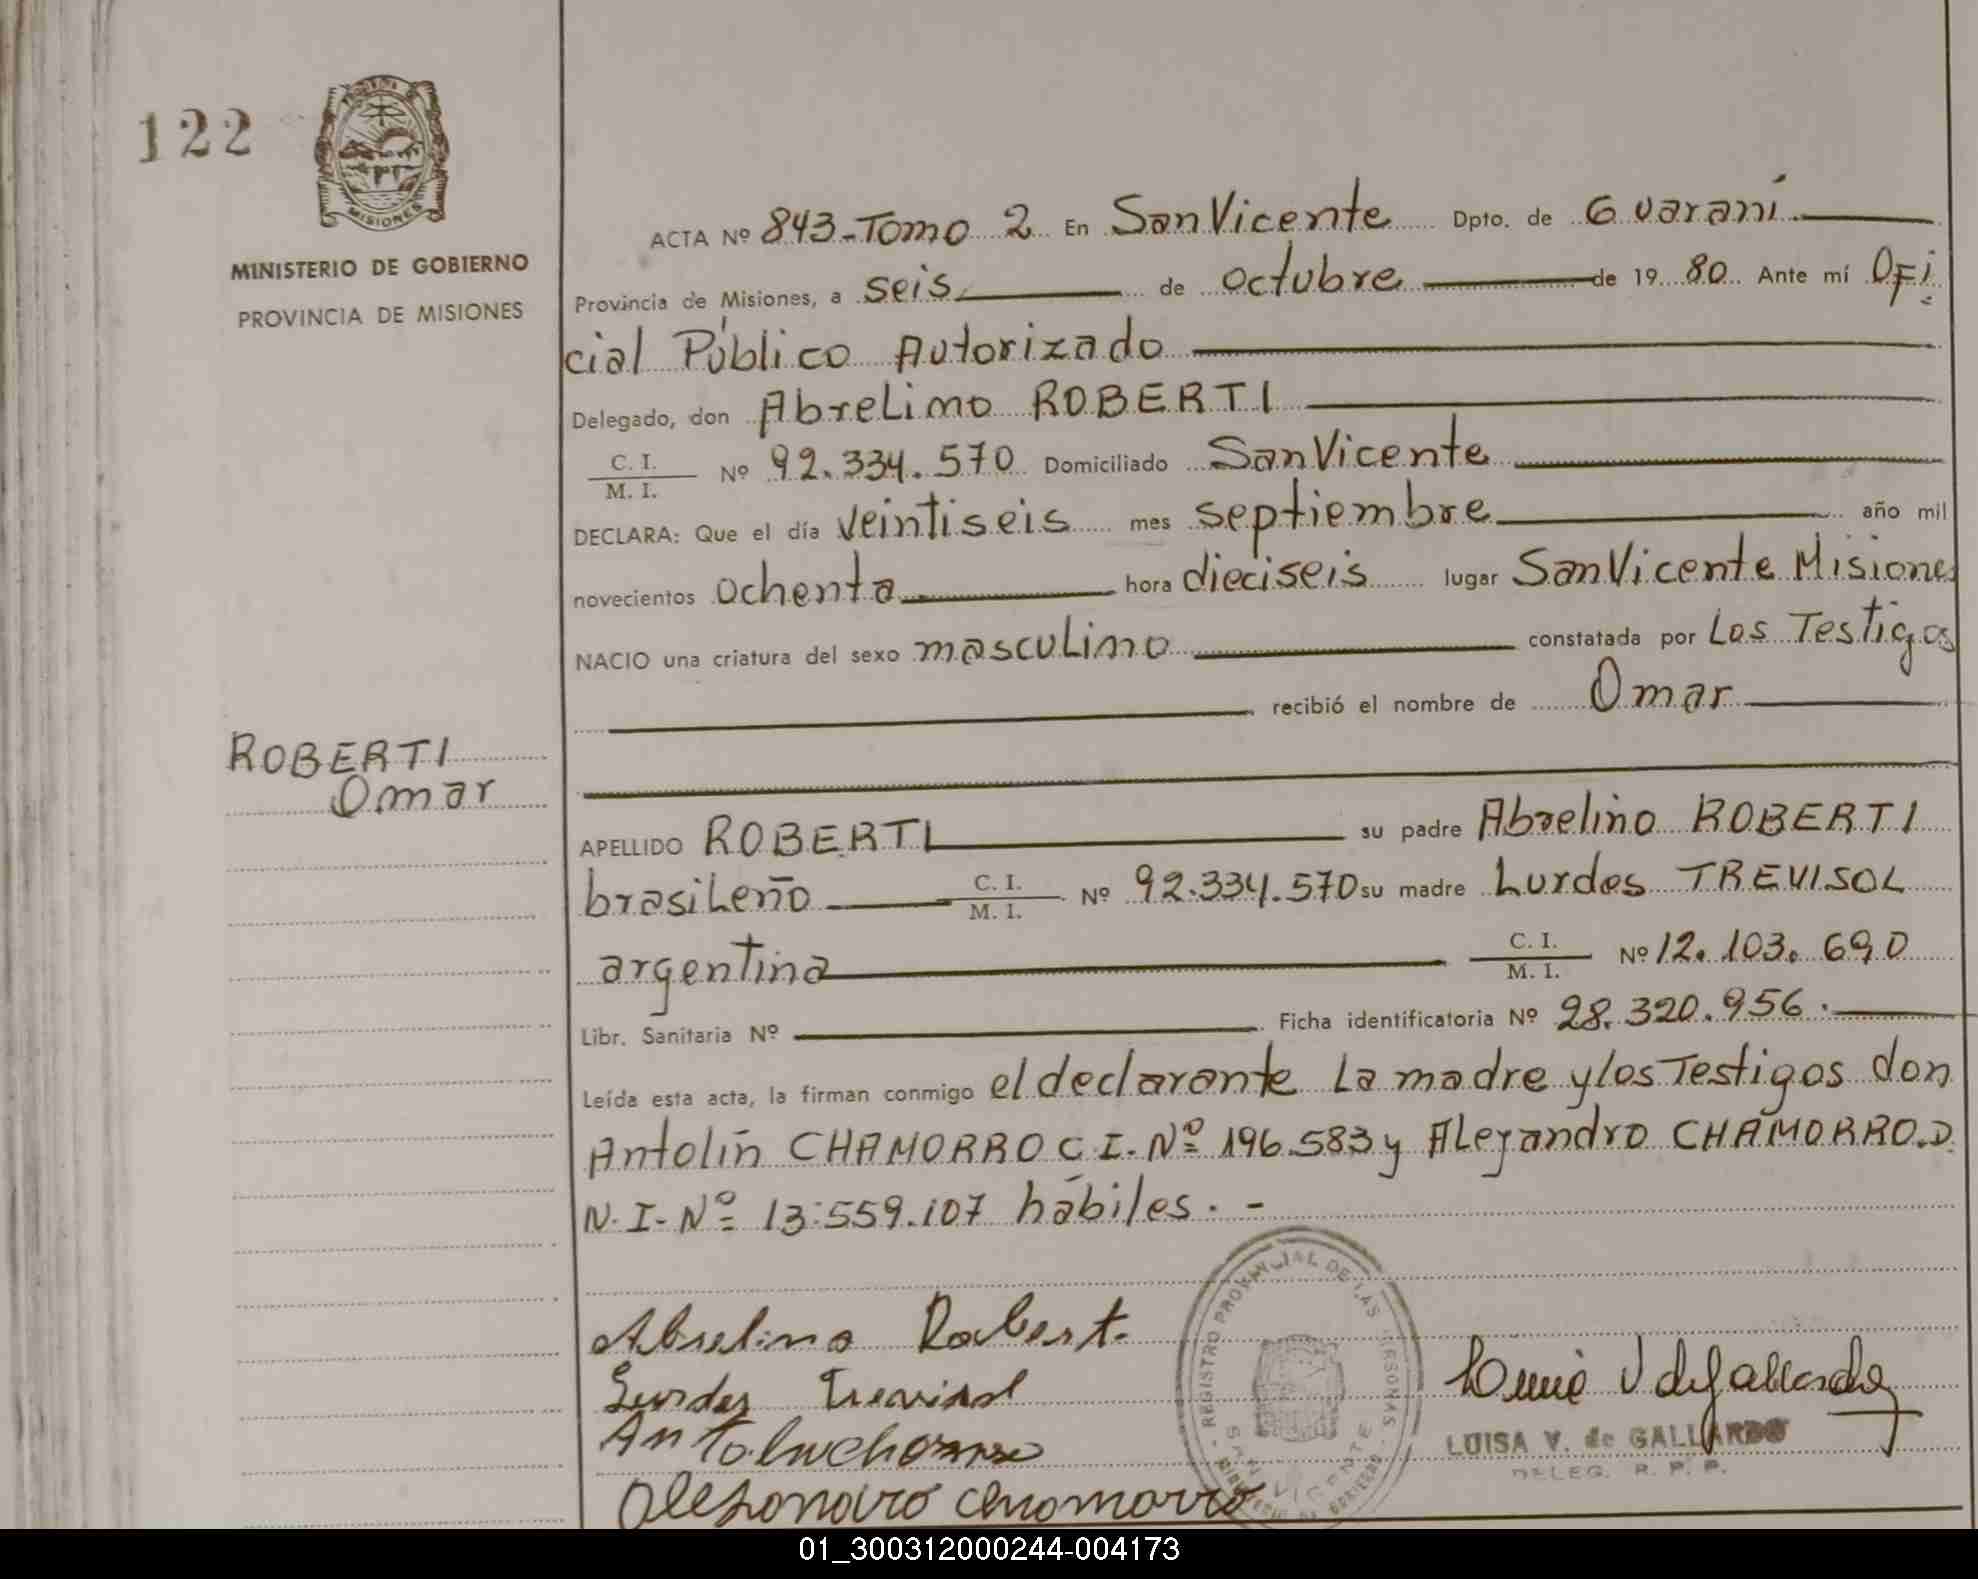 122
MISIONES
MINISTERIO DE GOBIERNO
PROVINCIA DE MISIONES
ROBERTI
Omar
ACTA Nº 843-Tomo 2 En San Vicente Dpto. de Guaraní
Provincia de Misiones, a seis de octubre de 1980 Ante mí Ofi
cial Público Autorizado
Delegado, don Abrelino ROBERTI
C. I. / M. I. Nº 92.334.570 Domiciliado San Vicente
DECLARA: Que el día veintiseis mes septiembre año mil
novecientos ochenta hora dieciseis lugar San Vicente Misiones
NACIO una criatura del sexo masculino constatada por Los Testigos
recibió el nombre de Omar
APELLIDO ROBERTI su padre Abrelino ROBERTI
brasileño C. I. / M. I. Nº 92.334.570 su madre Lurdes TREVISOL
argentina C. I. / M. I. Nº 12.103.690
Libr. Sanitaria Nº Ficha identificatoria Nº 28.320.956.
Leída esta acta, la firman conmigo el declarante La madre y los Testigos don
Antolín CHAMORRO C.I. Nº 196.583 y Alejandro CHAMORRO.D.
N.I-Nº 13.559.107 hábiles. -
Abrelino Robert
Lurdes Trevisol
REGISTRO PROVINCIAL DE LAS PERSONAS
SAN VICENTE
MINISTERIO DE GOBIERNO
LUISA V. de GALLARDO
DELEG. R. P. P.
01_300312000244-004173